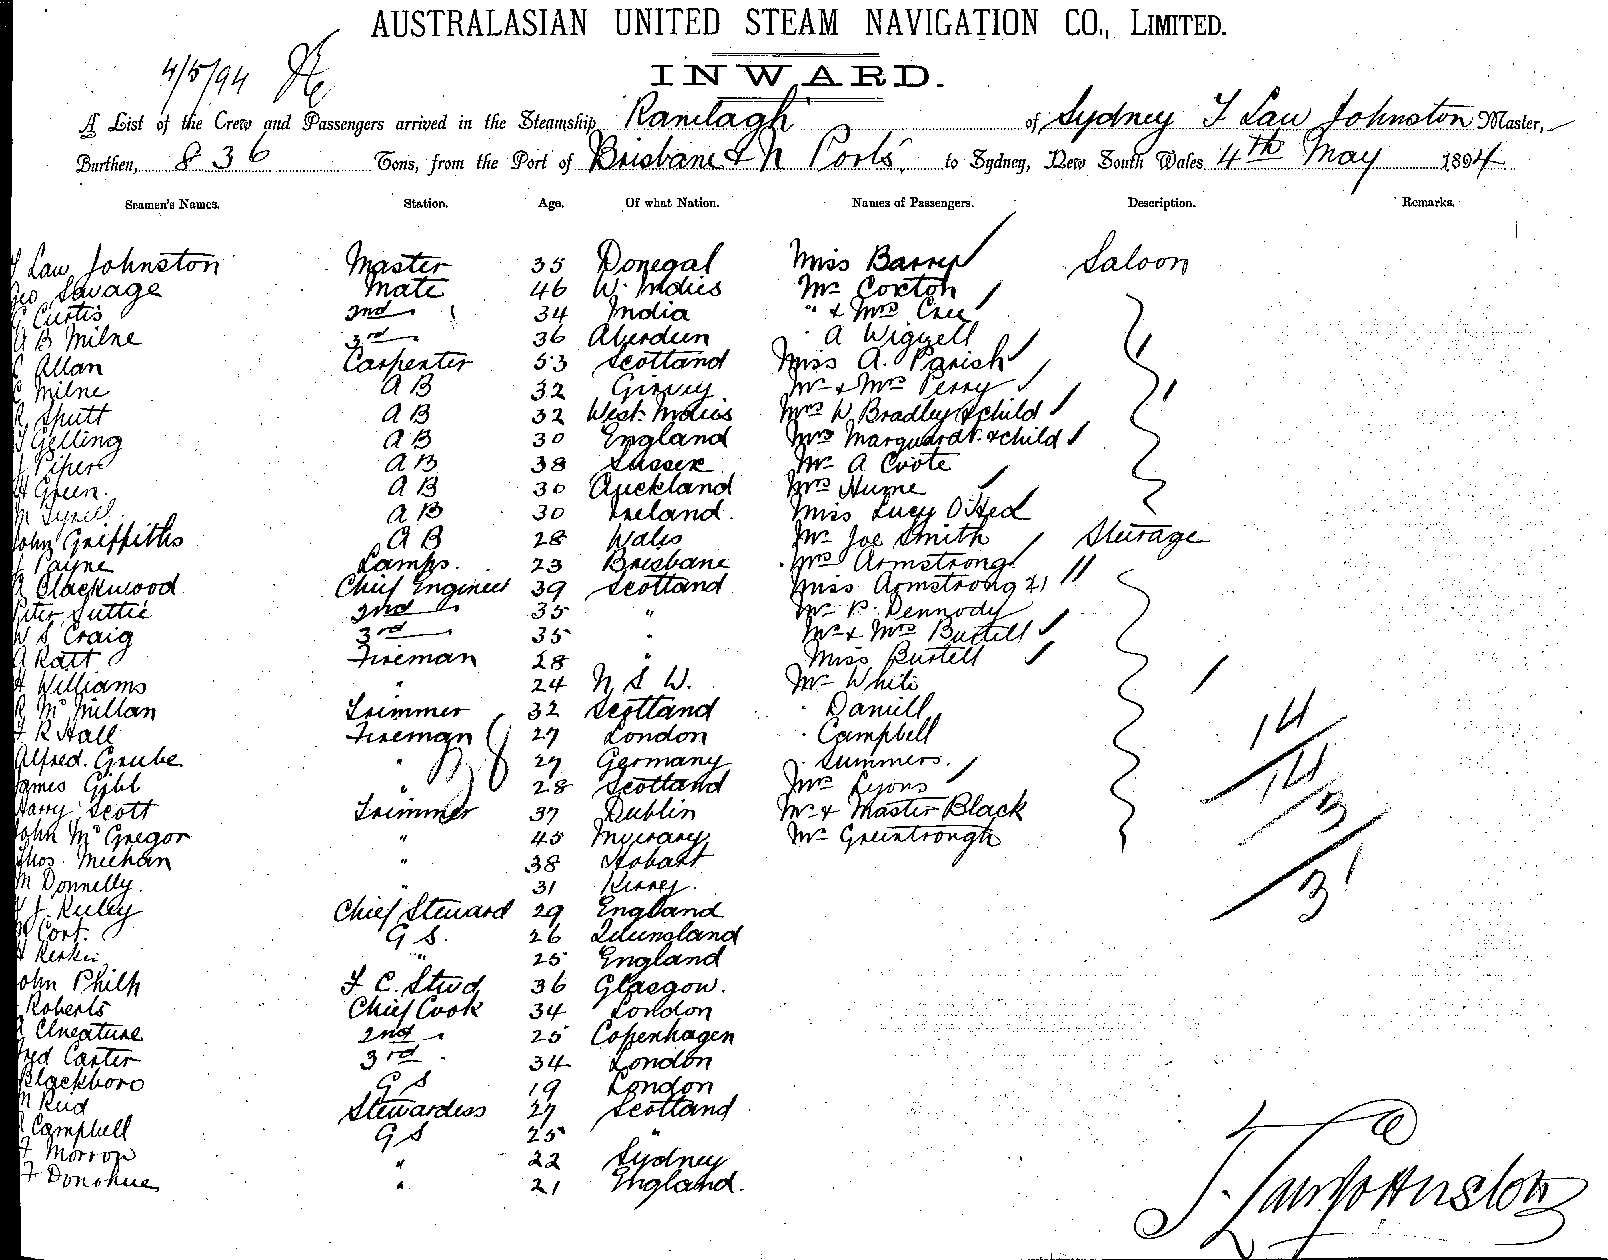 AUSTRALASIAN UNITED STEAM NAVIGATION CO., LIMITED.
4/5/94
INWARD.
A List of the Crew and Passengers arrived in the Steamship Ranelagh of Sydney T Law Johnston Master,
Burthen, 836 Tons, from the Port of Brisbane & N Ports, to Sydney, New South Wales 4th May 1894
Seamen's Names. Station. Age. Of what Nation. Names of Passengers. Description. Remarks.
Law Johnston Master 35 Donegal Miss Barry Saloon
Geo Savage Mate 46 W. Indies Mr Coxton
Curtis 2nd 34 India " & Mrs Cree
B Milne 3rd 36 Aberdeen A Wigzell
Allan Carpenter 53 Scotland Miss A. Parish
Milne A B 32 Mr & Mrs Perry
A B 32 West Indies Mrs W Bradley & child
Gelling A B 30 England Mrs Marquardt & child
Piper A B 38 Sussex Mr A Coote
Green. A B 30 Auckland Mrs Hume
A B 30 Ireland. Miss Lucy
John Griffiths A B 28 Wales Mr Joe Smith Steerage
Payne Lamps. 23 Brisbane Mrs Armstrong
Blackwood Chief Engineer 39 Scotland Miss Armstrong 21
Peter Suttie 2nd 35 " Mr P. Dennody
W S Craig 3rd 35 " Mr & Mrs Burtell
Ratt Fireman 28 " Miss Burtell
Williams " 24 N. S. W. Mr White
McMillan Trimmer 32 Scotland Daniell
R Hall Fireman 27 London Campbell
Alfred. Grube " 27 Germany Summers.
James Gibb " 28 Scotland Mrs Lyons
Harry Scott Trimmer 37 Dublin Mr & Master Black
John McGregor " 45 Mr Greentrough
Thos. Meehan " 38 Hobart
M Donnelly. " 31
J. Kelley Chief Steward 29 England
Cort. G S. 26 Queensland
" 25 England
John Philp F. C. Stwd 36 Glasgow.
Roberts Chief Cook 34 London
2nd 25 Copenhagen
Fred Carter 3rd 34 London
Blackboro G S 19 London
M Reid Stewardess 27 Scotland
Campbell G S 25 "
Morrow " 22 Sydney
F Donohue " 21 England.
14
14
3
31
T. Law Johnston